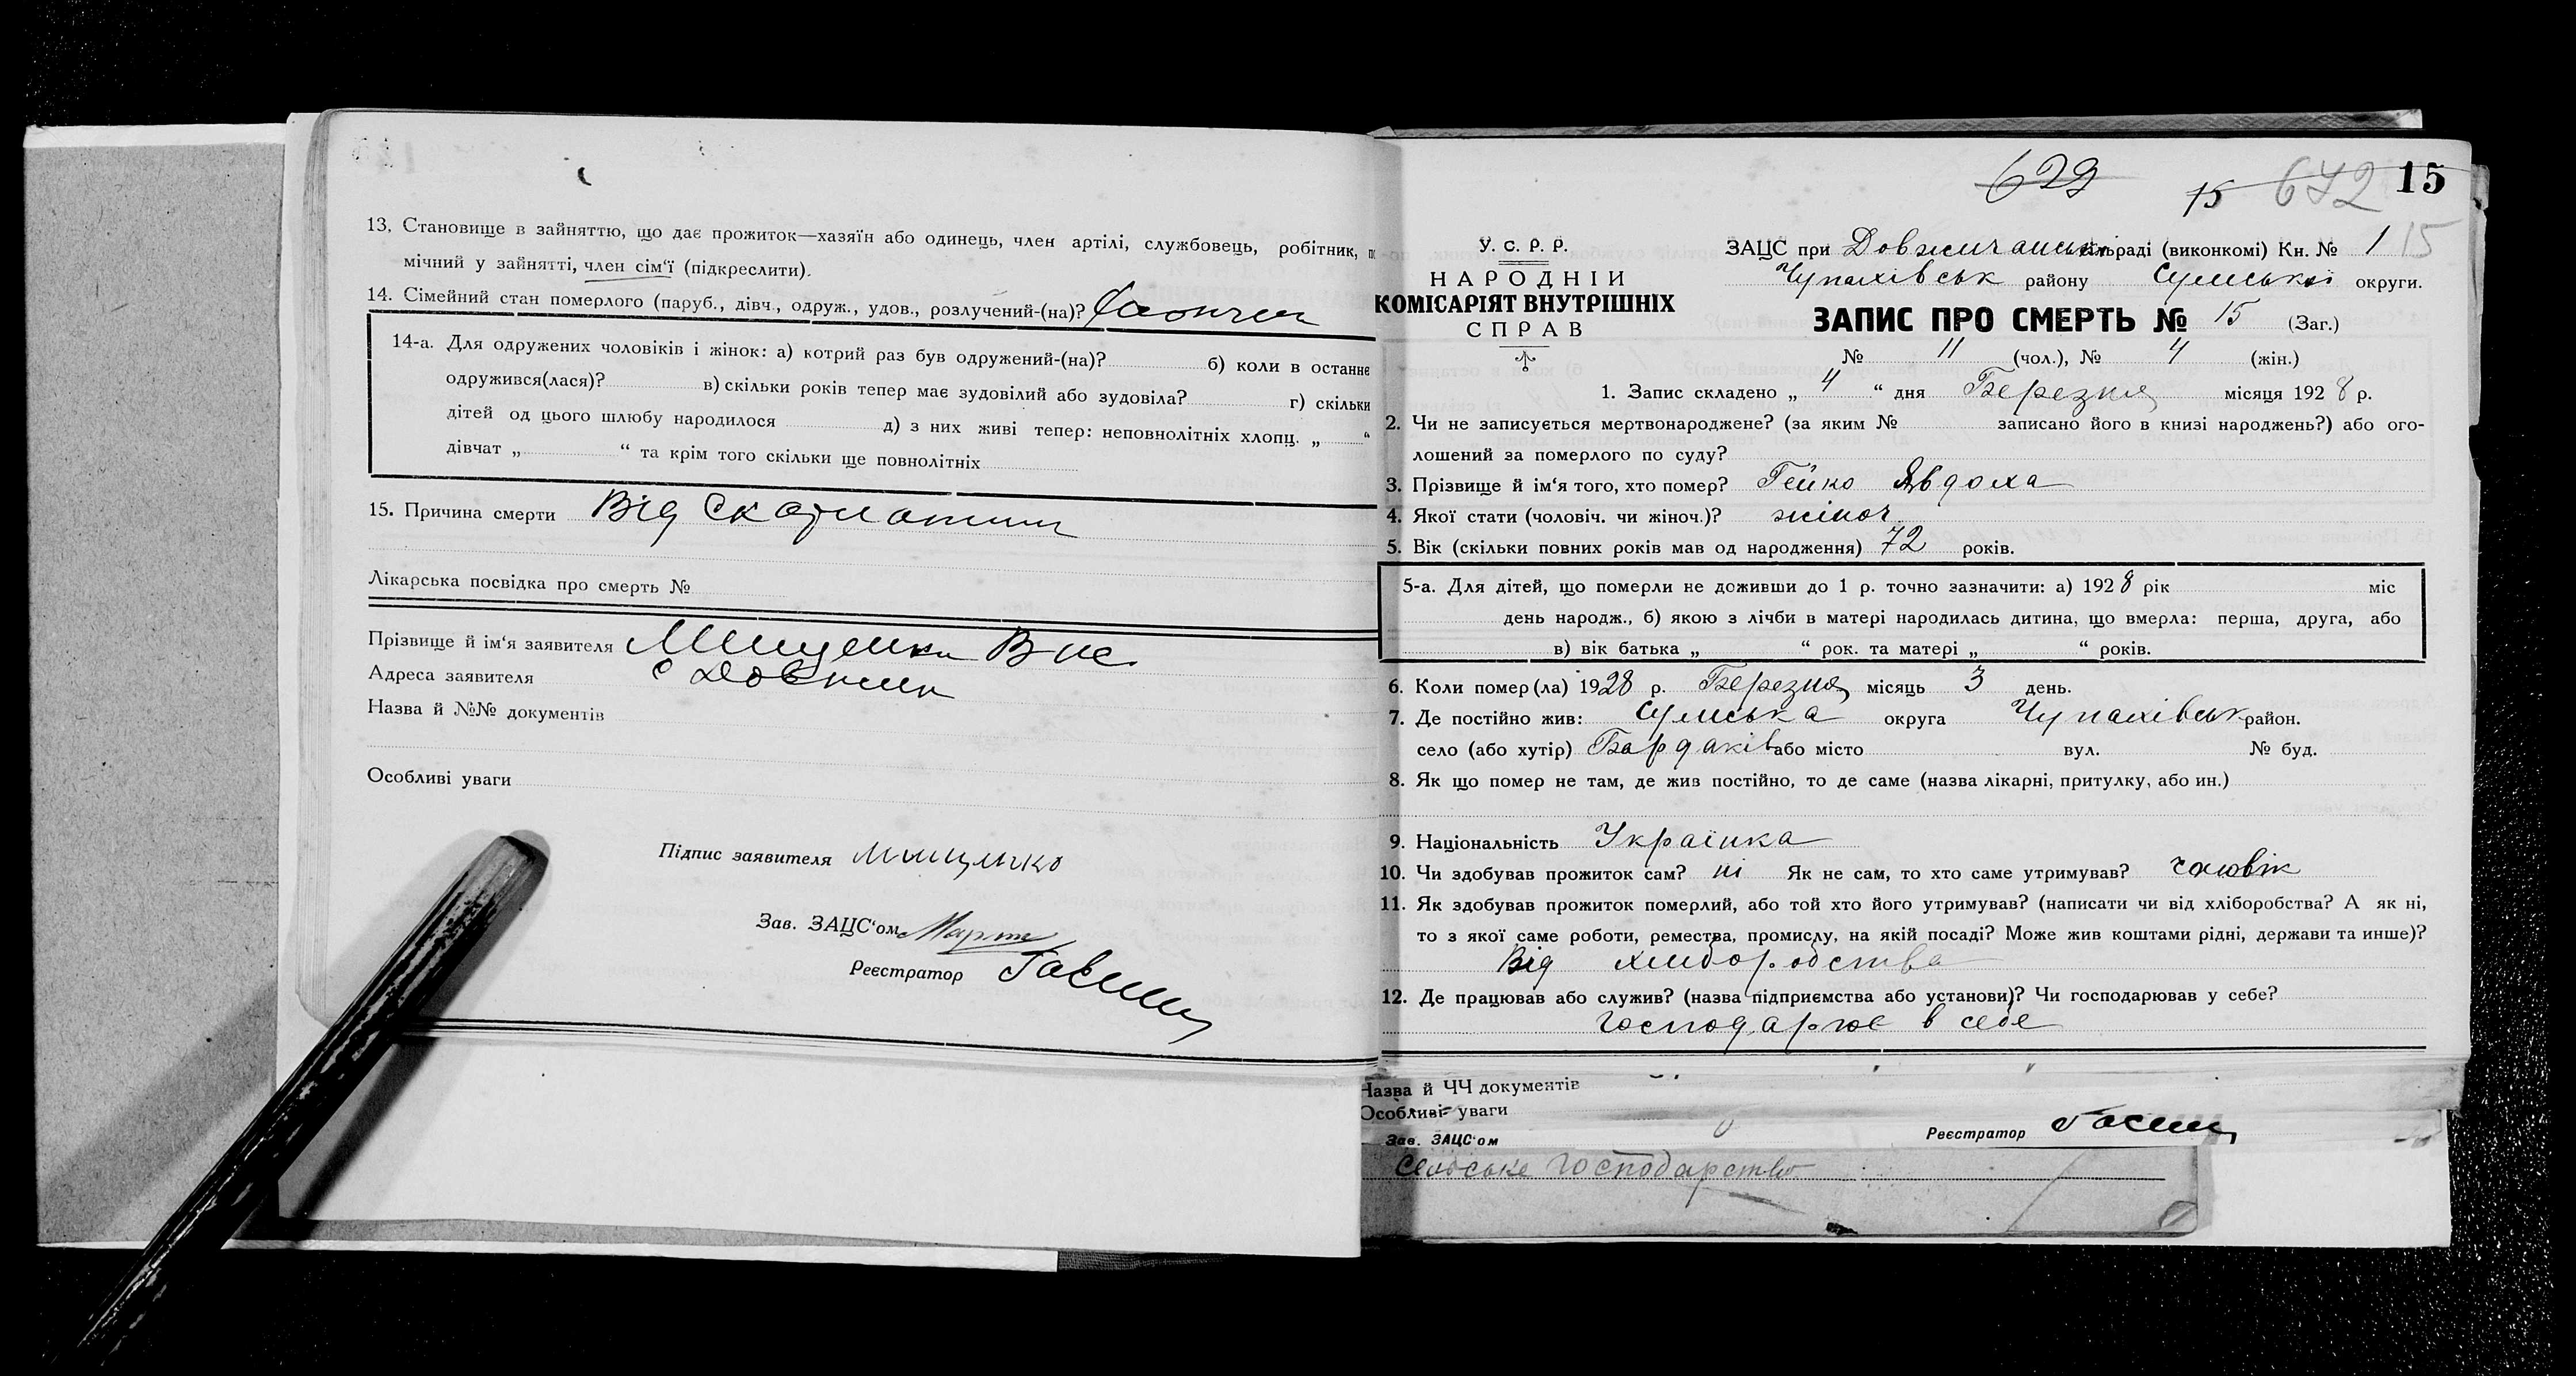 13. Становище в зайняттю, що дає прожиток—хазяїн або одинець, член артілі, службовець, робітник,
мічний у зайнятті, член сім'ї (підкреслити).
14. Сімейний стан померлого (паруб., дівч., одруж., удов., розлучений-(на)?
14-а. Для одружених чоловіків і жінок: а) котрий раз був одружений-(на)? б) коли в останнє
одружився(лася)? в) скільки років тепер має зудовілий або зудовіла? г) скільки
дітей од цього шлюбу народилося д) з них живі тепер: неповнолітніх хлопц. „ “
дівчат „ “ та крім того скільки ще повнолітніх
15. Причина смерти Від Скарлатини
Лікарська посвідка про смерть №
Прізвище й ім'я заявителя Мищенко Вас.
Адреса заявителя с Довжик
Назва й №№ документів
Особливі уваги
Підпис заявителя Мищенко
Зав. ЗАЦС'ом
Реєстратор
629 15 642 15
У. С. Р. Р.
НАРОДНІЙ
КОМІСАРІЯТ ВНУТРІШНІХ
СПРАВ
ЗАЦС при Довжичанській раді (виконкомі) Кн. № 1 15
Чупахівськ району Сумської округи.
ЗАПИС ПРО СМЕРТЬ № 15 (Заг.)
№ 11 (чол.), № 4 (жін.)
1. Запис складено „ 4 “ дня Березня місяця 1928 р.
2. Чи не записується мертвонароджене? (за яким № записано його в книзі народжень?) або ого-
лошений за померлого по суду?
3. Прізвище й ім'я того, хто помер? Гейко Явдоха
4. Якої стати (чоловіч. чи жіноч.)? жіноч
5. Вік (скільки повних років мав од народження) 72 років.
5-а. Для дітей, що померли не доживши до 1 р. точно зазначити: а) 1928 рік міс
день народж., б) якою з лічби в матері народилась дитина, що вмерла: перша, друга, або
в) вік батька „ “ рок. та матері „ “ років.
6. Коли помер(ла) 1928 р. Березня місяць 3 день.
7. Де постійно жив: Сумська округа Чупахівськ район.
село (або хутір) Бардаків або місто вул. № буд.
8. Як що помер не там, де жив постійно, то де саме (назва лікарні, притулку, або ин.)
9. Національність Українка
10. Чи здобував прожиток сам? ні Як не сам, то хто саме утримував? чоловік
11. Як здобував прожиток померлий, або той хто його утримував? (написати чи від хліборобства? А як ні,
то з якої саме роботи, ремества, промислу, на якій посаді? Може жив коштами рідні, держави та инше)?
Від хліборобства
12. Де працював або служив? (назва підприємства або установи)? Чи господарював у себе?
Господарює в себе
Назва й ЧЧ документів
Особливі уваги
Зав. ЗАЦС'ом Реєстратор
сельське господарство